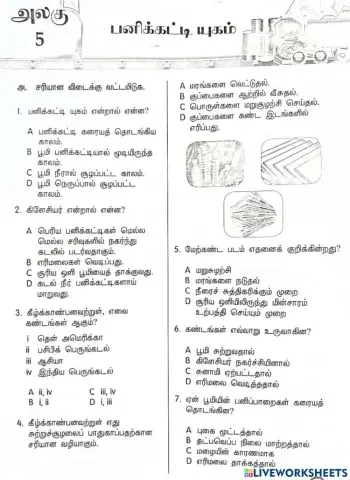 அலகு
5
பனிக்கட்டி யுகம்
அ. சரியான விடைக்கு வட்டமிடுக.
1. பனிக்கட்டி யுகம் என்றால் என்ன?
A பனிக்கட்டி கரையத் தொடங்கிய
காலம்.
B பூமி பனிக்கட்டியால் மூடியிருந்த
காலம்.
C பூமி நீரால் சூழப்பட்ட காலம்.
D பூமி நெருப்பால் சூழப்பட்ட
காலம்.
2. கிளேசியர் என்றால் என்ன?
A பெரிய பனிக்கட்டிகள் மெல்ல
மெல்ல சரிவுகளில் நகர்ந்து
கடலில் படர்வதாகும்.
B எரிமலைகள் வெடிப்பது.
C சூரிய ஒளி பூமியைத் தாக்குவது.
D கடல் நீர் பனிக்கட்டிகளாய்
மாறுவது.
3. கீழ்க்காண்பனவற்றுள், எவை
கண்டங்கள் ஆகும்?
i தென் அமெரிக்கா
ii பசிபிக் பெருங்கடல்
iii ஆசியா
iv இந்திய பெருங்கடல்
A ii, iv C iii, iv
B i, ii D i, iii
4. கீழ்க்காண்பனவற்றுள் எது
சுற்றுச்சூழலைப் பாதுகாப்பதற்கான
சரியான வழியாகும்.
A மரங்களை வெட்டுதல்.
B குப்பைகளை ஆற்றில் வீசுதல்.
C பொருள்களை மறுசுழற்சி செய்தல்.
D குப்பைகளை கண்ட இடங்களில்
எரிப்பது.
5. மேற்கண்ட படம் எதனைக் குறிக்கின்றது?
A மறுசுழற்சி
B மரங்களை நடுதல்
C நீரைச் சுத்திகரிக்கும் முறை
D சூரிய ஒளியிலிருந்து மின்சாரம்
உற்பத்தி செய்யும் முறை
6. கண்டங்கள் எவ்வாறு உருவாகின?
A பூமி சுற்றுவதால்
B கிளேசியர் நகர்ச்சியினால்
C சுனாமி ஏற்பட்டதால்
D எரிமலை வெடித்ததால்
7. ஏன் பூமியின் பனிப்பாறைகள் கரையத்
தொடங்கின?
A புகை மூட்டத்தால்
B தட்பவெப்ப நிலை மாற்றத்தால்
C மழையின் காரணமாக
D எரிமலை தாக்கத்தால்
LIVEWORKSHEETS